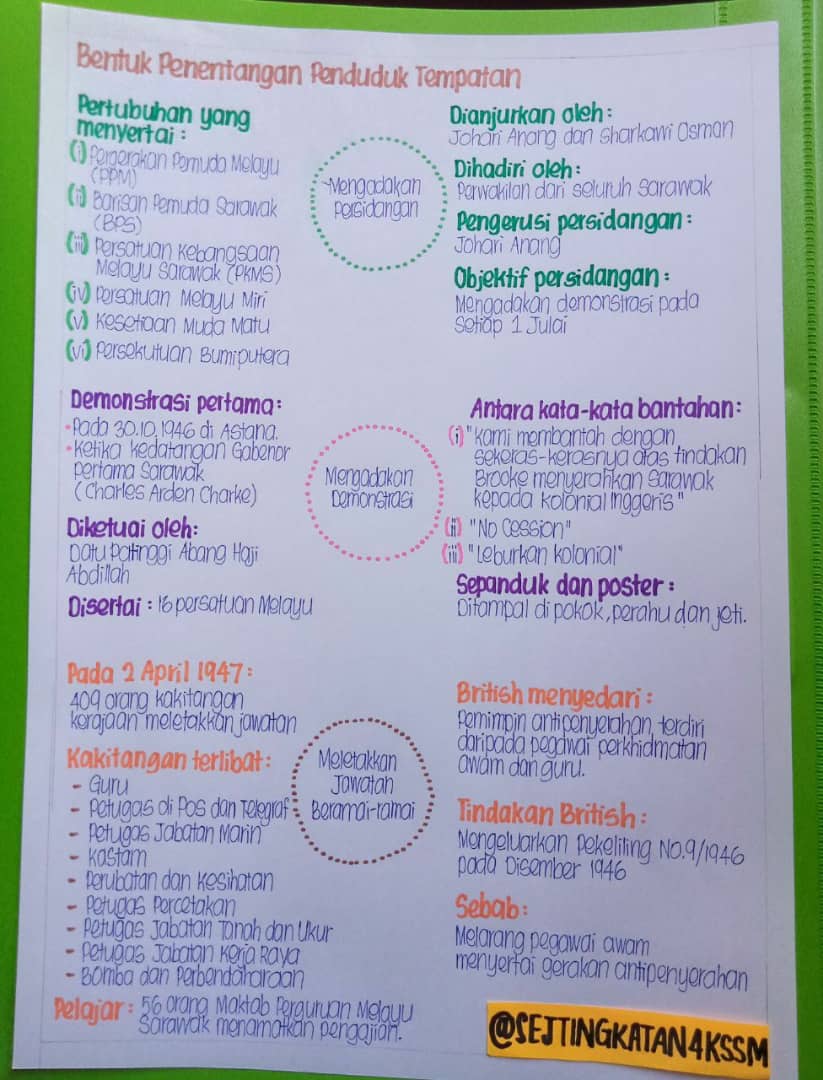 Bentuk Penentangan Penduduk Tempatan
Pertubuhan yang
menyertai :
(i) Pergerakan Pemuda Melayu
(PPM)
(ii) Barisan Pemuda Sarawak
(BPS)
(iii) Persatuan Kebangsaan
Melayu Sarawak (PKMS)
(iv) Persatuan Melayu Miri
(v) Kesetiaan Muda Matu
(vi) Persekutuan Bumiputera
Mengadakan
Persidangan
Dianjurkan oleh :
Johari Anang dan Sharkawi Osman
Dihadiri oleh :
Perwakilan dari seluruh Sarawak
Pengerusi persidangan :
Johari Anang
Objektif persidangan :
Mengadakan demonstrasi pada
setiap 1 Julai
Demonstrasi pertama :
• Pada 30.10.1946 di Astana.
• Ketika kedatangan Gabenor
pertama Sarawak
(Charles Arden Charke)
Diketuai oleh:
Datu Patinggi Abang Haji
Abdillah
Disertai : 16 persatuan Melayu
Mengadakan
Demonstrasi
Antara kata-kata bantahan :
(i) "Kami membantah dengan
sekeras-kerasnya atas tindakan
Brooke menyerahkan Sarawak
kepada kolonial Inggeris"
(ii) "No Cession"
(iii) "Leburkan kolonial"
Sepanduk dan poster :
Ditampal di pokok, perahu dan jeti.
Pada 2 April 1947 :
409 orang kakitangan
kerajaan meletakkan jawatan
Kakitangan terlibat :
- Guru
- Petugas di Pos dan Telegraf
- Petugas Jabatan Marin
- Kastam
- Perubatan dan Kesihatan
- Petugas Percetakan
- Petugas Jabatan Tanah dan Ukur
- Petugas Jabatan Kerja Raya
- Bomba dan Perbendaharaan
Pelajar : 56 orang Maktab Perguruan Melayu
Sarawak menamatkan pengajian.
Meletakkan
Jawatan
Beramai-ramai
British menyedari :
Pemimpin antipenyerahan, terdiri
daripada pegawai perkhidmatan
awam dan guru.
Tindakan British :
Mengeluarkan Pekeliling No.9/1946
pada Disember 1946
Sebab :
Melarang pegawai awam
menyertai gerakan antipenyerahan
@SEJTINGKATAN4KSSM